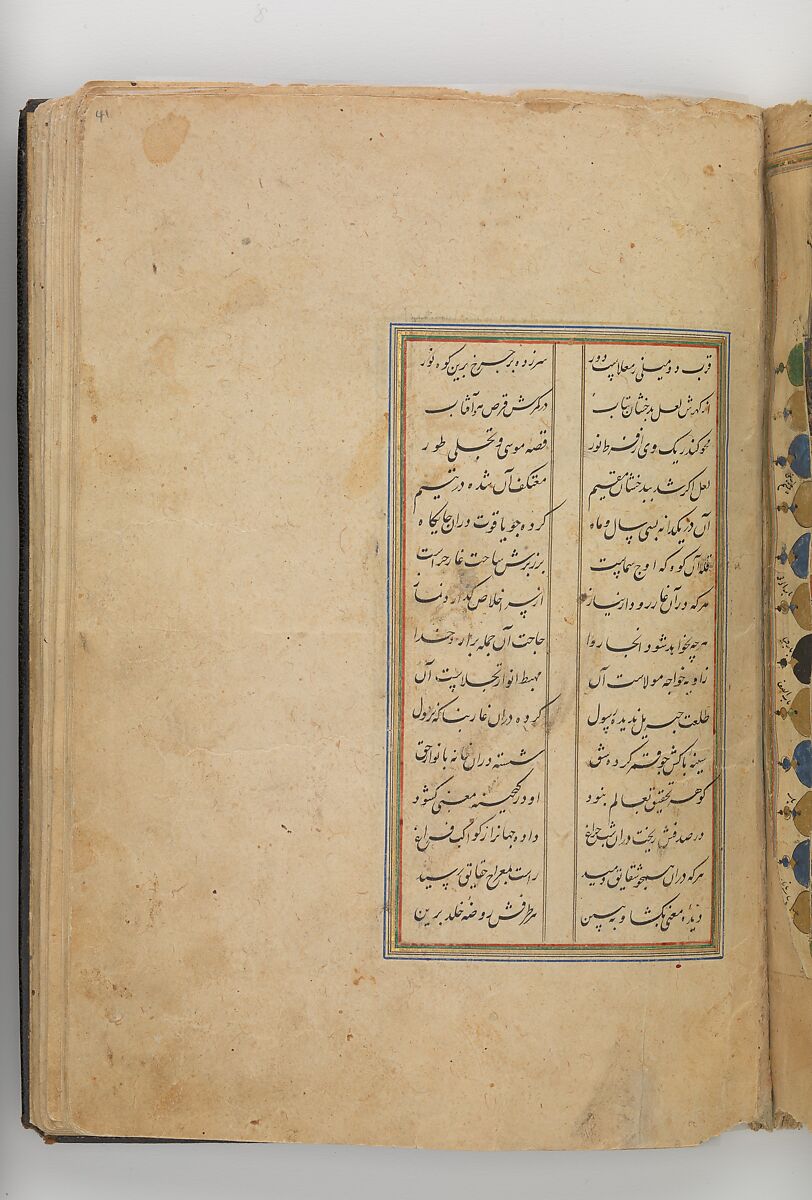 قرب دو میلی ز معلاست دور سر زده بر چرخ برین کوه نور
از کهرش لعل بدخشان بتاب در کمرش قرص مه و آفتاب
محو کند ریک وی از فرط نور قصه موسی و تجلی طور
لعل اکر شد ببدخشان مقیم معتکف آن شده در یتیم
آن در یکدانه بسی سال و ماه کرده چو یاقوت دران جایکاه
قله آن کوه که اوج سماست بر زبرش ساحت غار حراست
هر که در آن غار رود از نیاز از سر اخلاص کذارد نماز
هر چه بخواهد شود آنجا روا حاجت آن جمله برآرد خدا
زاویه خواجه مولاست آن مهبط انوار تجلاست آن
طلعت جبریل ندیده رسول کرده دران غار بناکه نزول
سینه پاکش چو قمر کرده شق شسته دران خانه بانوار حق
کوهر تحقیق بعالم نمود او در کنجینه معنی کشود
در صدفش ریخت دران شب چراغ داده جهانرا ز کواکب فراغ
هر که دران همچو شقایق دمید راست بمعراج حقایق رسید
دیده معنی بکشا و ببین هر طرفش روضه خلد برین
۴۱